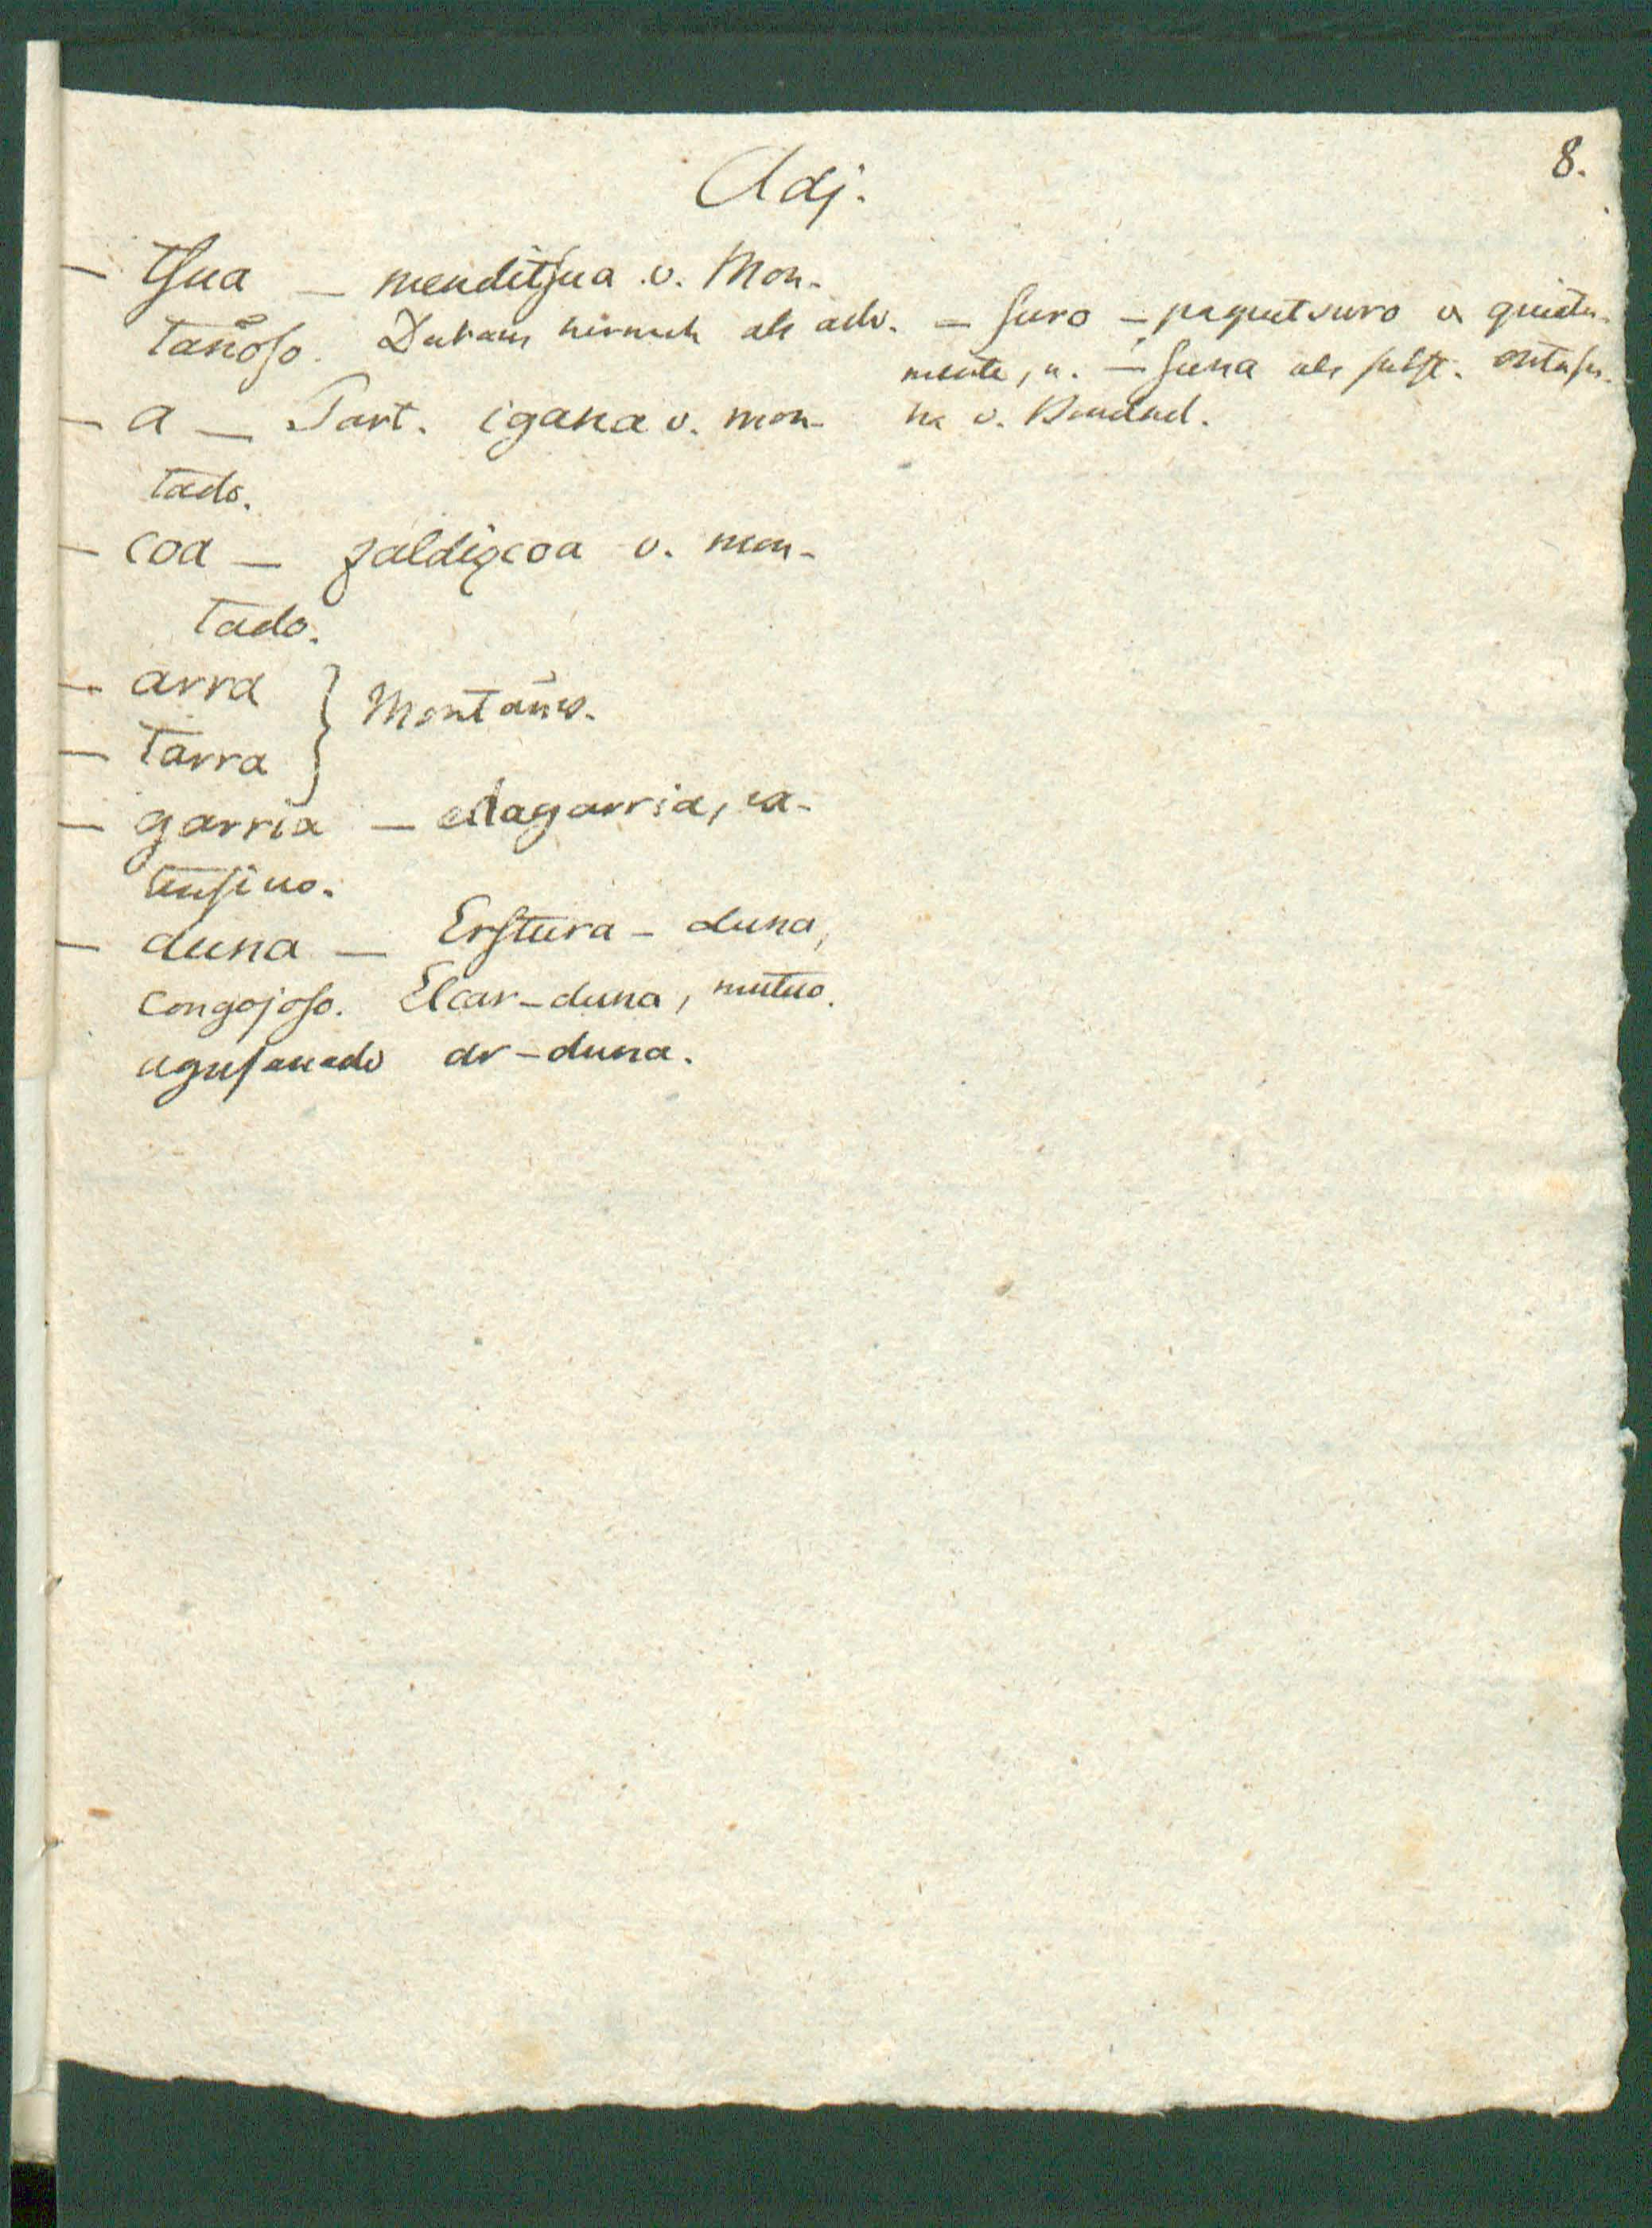 8.
Adj.
— tsua — menditsua v. Mon-
tañoso. Daraus hernach als adv. — suro — paquetsuro v. quieta-
mente, u. — suna als subst. ontasu-
na v. Bondad.
— a — Part. igana v. mon-
tado.
— coa — zaldizcoa v. mon-
tado.
— arra } Montañes.
— tarra
— garria — edagarria, ex-
tensivo.
— duna — Erstura-duna,
congojoso. Elcar-duna, mutuo.
agusanado ar-duna.